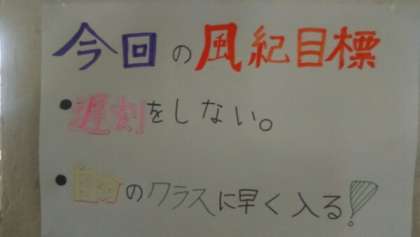 今回の風紀目標
•遅刻をしない。
•自分のクラスに早く入る!